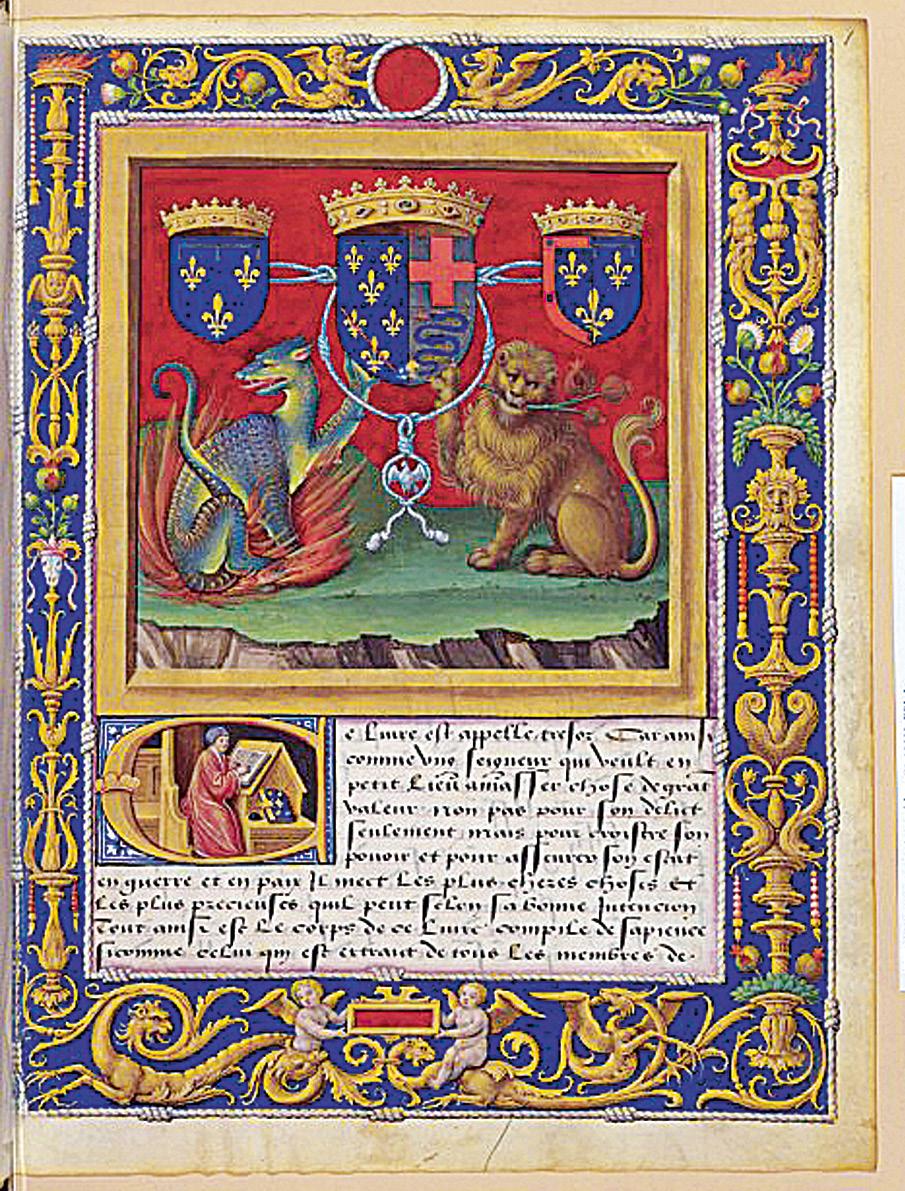 Ce Livre est appelle tresor Car ainsi
comme vng seigneur qui veult en
petit Lieu amasser chose de grāt
valeur non pas pour son delict
seulement mais pour croistre son
pouoir et pour asseurer son estat
en guerre et en paix Il mect Les plus cheres choses et
Les plus precieuses quil peut selon sa bonne Intencion
Tout ainsi est Le corps de ce Livre compile de sapience
sicomme celui qui est extraict de tous Les membres de